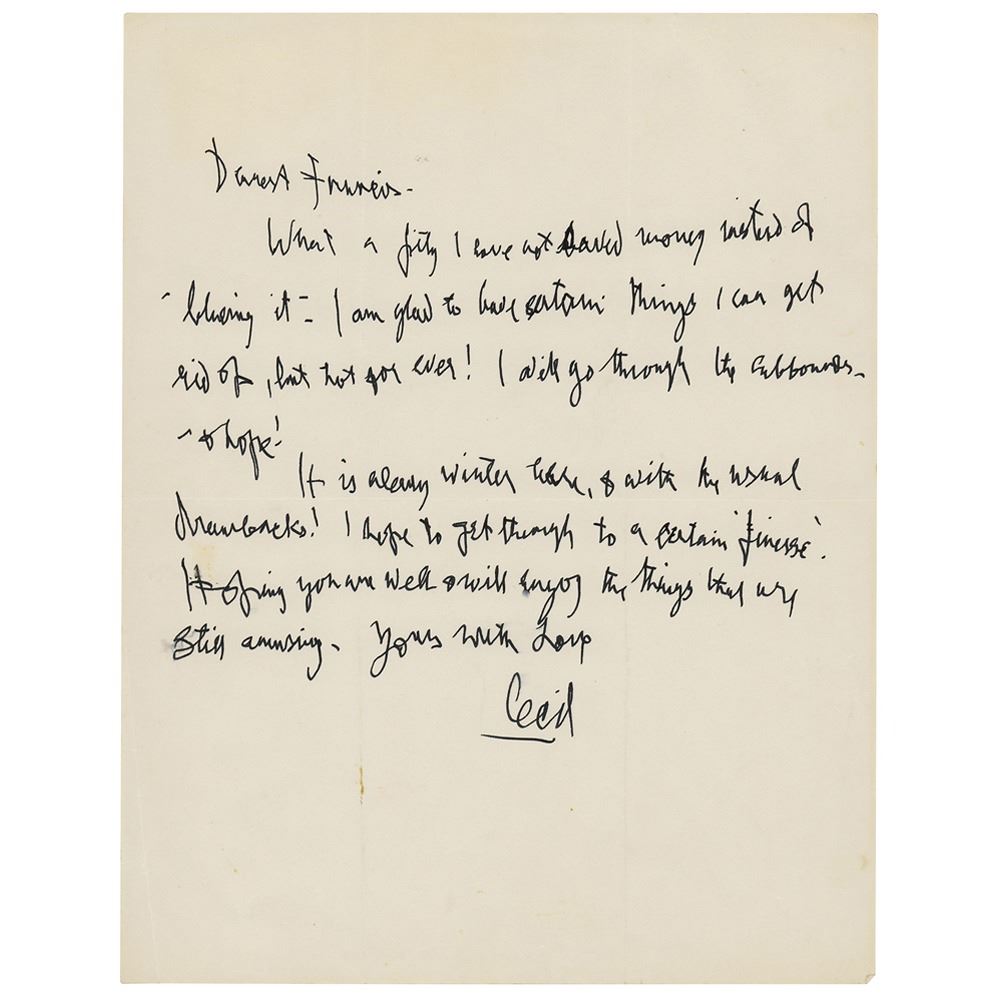 Dearest Francis -
What a pity I have not saved money instead of
'blueing it' - I am glad to have certain things I can get
rid of, but not for ever! I will go through the cupboards -
- & hope!
It is already winter here, & with the usual
drawbacks! I hope to get through to a certain 'finesse'.
Hoping you are well & will enjoy the things that are
still amusing. Yours with Love
Cecil